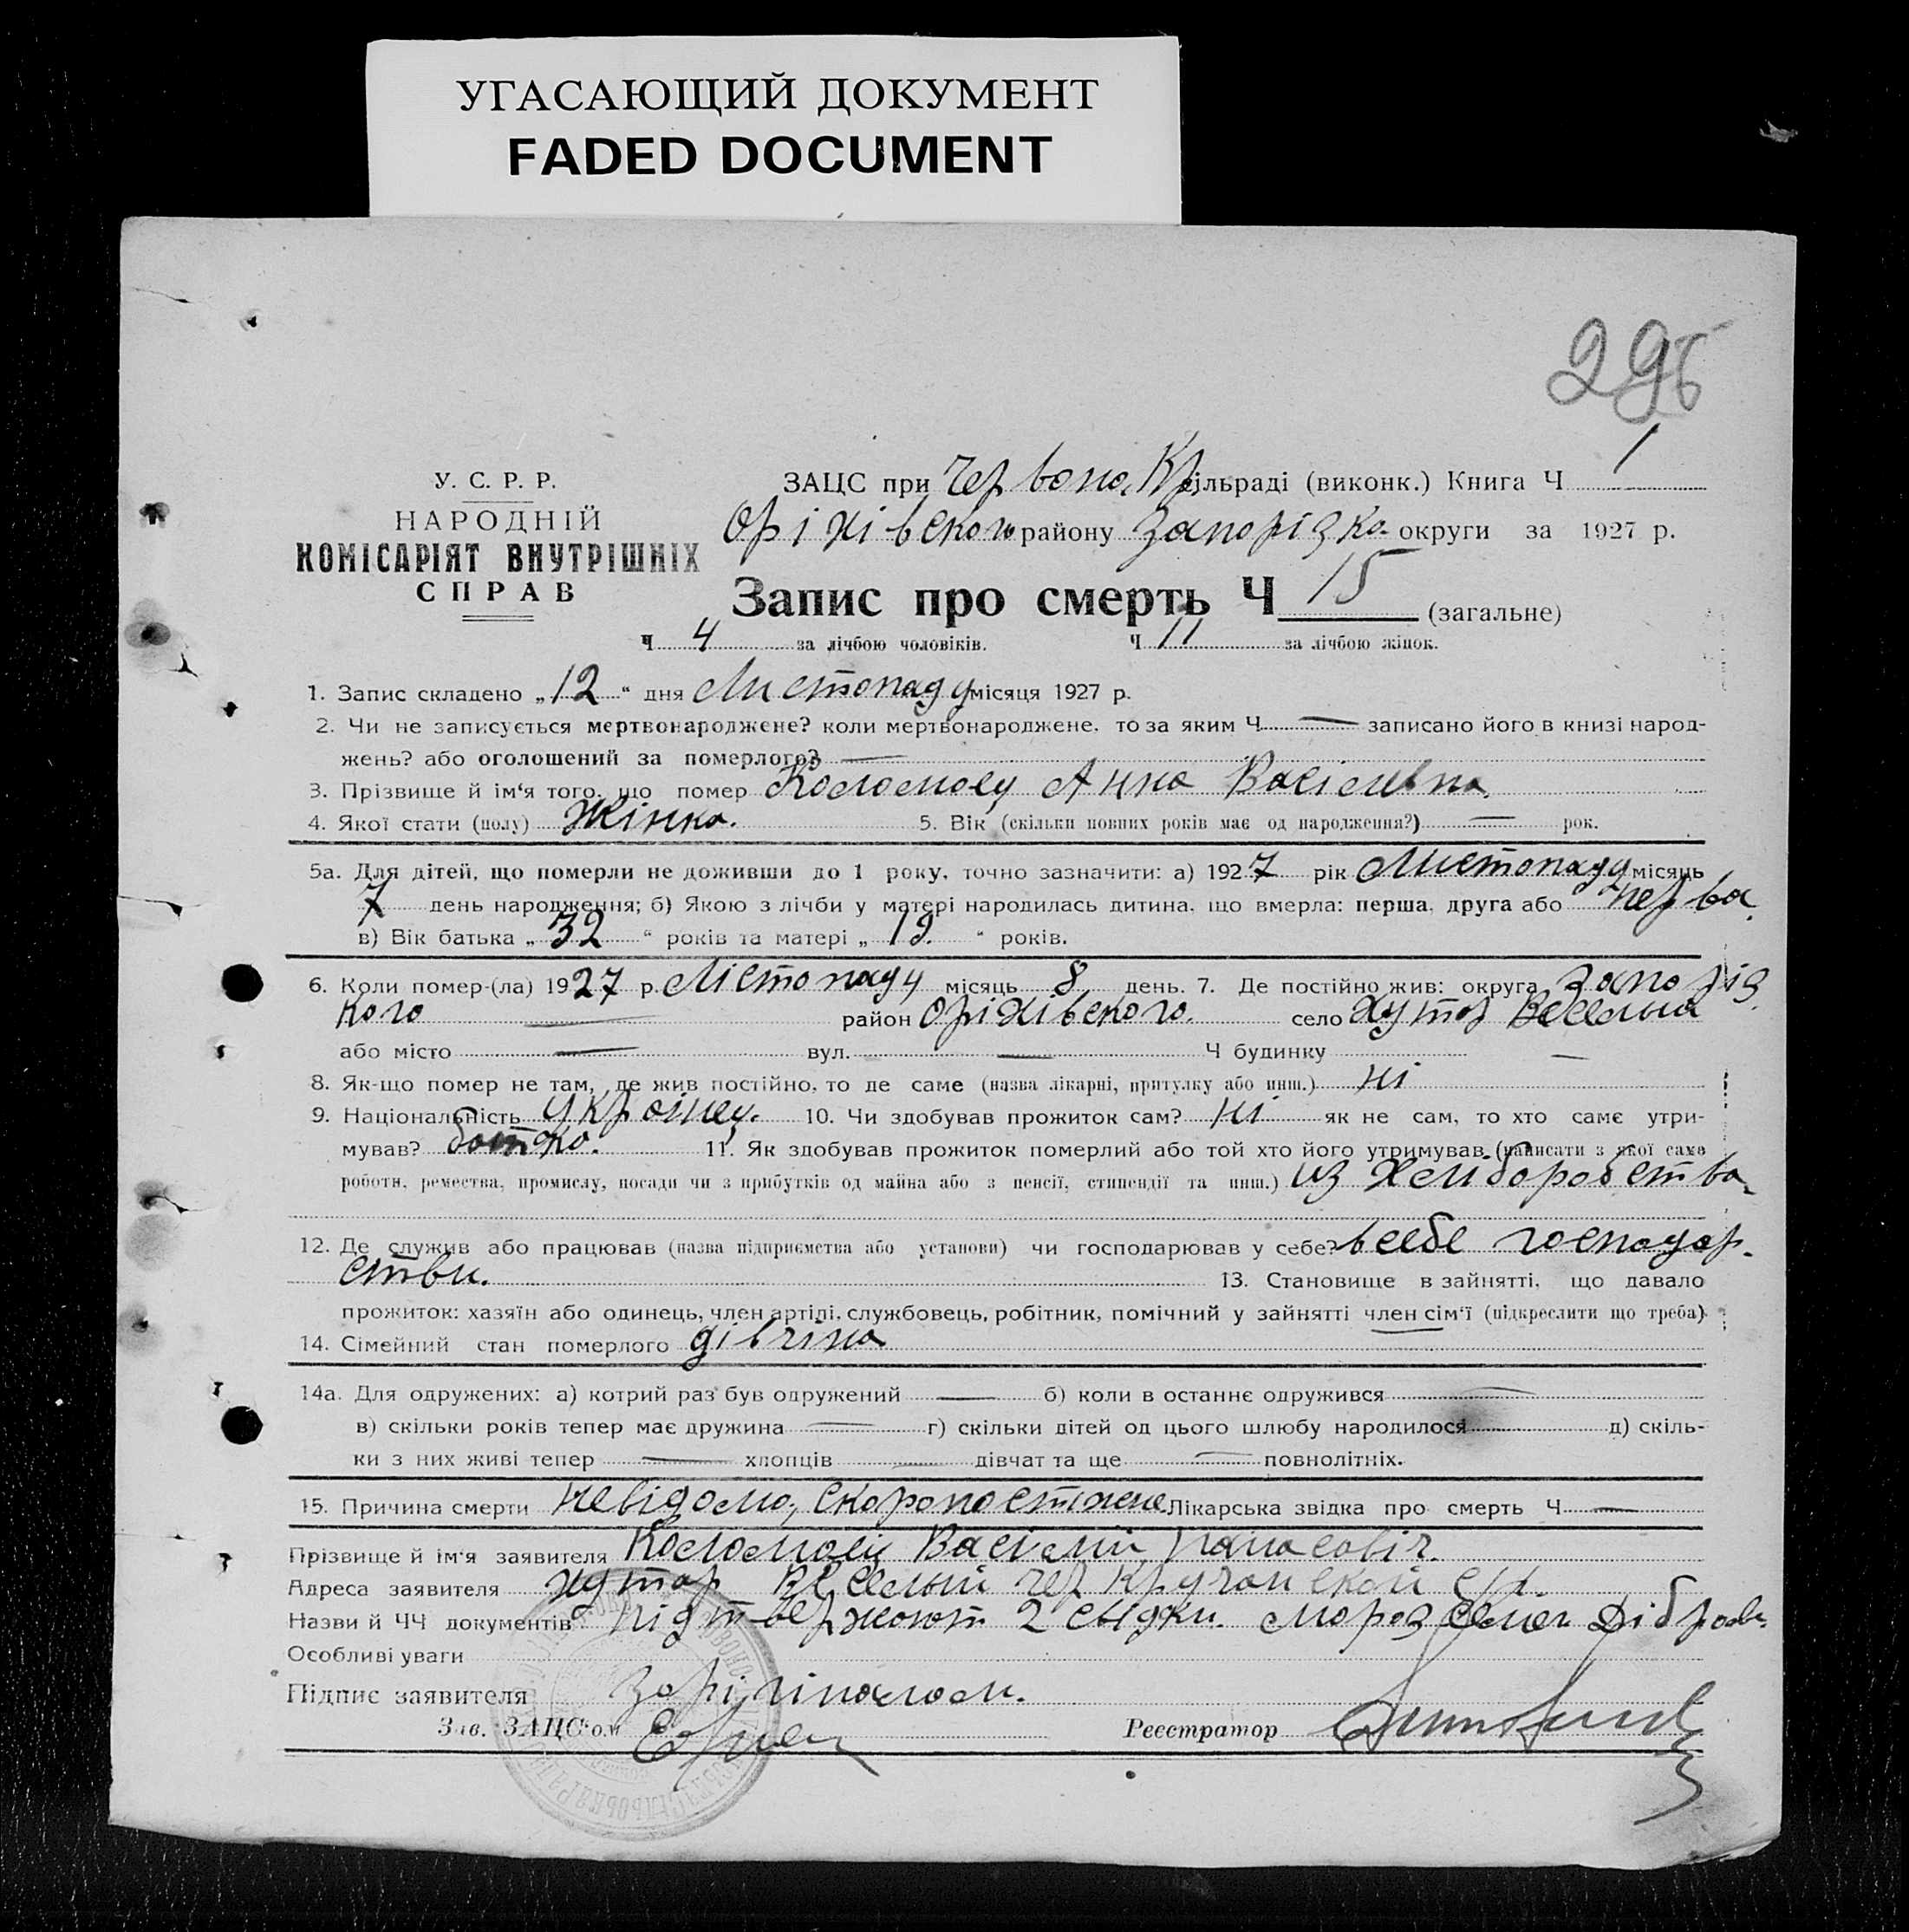 УГАСАЮЩИЙ ДОКУМЕНТ
FADED DOCUMENT
296
У. С. Р. Р.
НАРОДНІЙ
КОМІСАРІЯТ ВНУТРІШНІХ
СПРАВ
ЗАЦС при Червоно. Кр. сільраді (виконк.) Книга Ч 1
Оріхівского району Запорізко. округи за 1927 р.
Запис про смерть Ч 15 (загальне)
Ч 4 за лічбою чоловіків. Ч 11 за лічбою жінок.
1. Запис складено „12“ дня Листопаду місяця 1927 р.
2. Чи не записується мертвонароджене? коли мертвонароджене, то за яким Ч — записано його в книзі народ-
жень? або оголошений за померлого? —
3. Прізвище й ім'я того, що помер Коломоец Анна Васілевна.
4. Якої стати (полу) Жінка. 5. Вік (скільки повних років має од народження?) — рок.
5а. Для дітей, що померли не доживши до 1 року, точно зазначити: а) 1927 рік Листопаду місяць
7 день народження; б) Якою з лічби у матері народилась дитина, що вмерла: перша, друга або перва
в) Вік батька „32“ років та матері „19.“ років.
6. Коли помер-(ла) 1927 р. Лістопаду місяць 8 день. 7. Де постійно жив: округа Запоріз
кого — район Оріхівского. село Хутор Веселий
або місто — вул. — Ч будинку —
8. Як-що помер не там, де жив постійно, то де саме (назва лікарні, притулку або инш.) ні
9. Національність Україн. 10. Чи здобував прожиток сам? ні як не сам, то хто саме утри-
мував? батько. 11. Як здобував прожиток померлий або той хто його утримував (написати з якої саме
роботи, ремества, промислу, посади чи з прибутків од майна або з пенсії, стипендії та инш.) из хлиборобства
12. Де служив або працював (назва підприємства або установи) чи господарював у себе? всебе господар-
стви. 13. Становище в зайнятті, що давало
прожиток: хазяїн або одинець, член артілі, службовець, робітник, помічний у зайнятті член сім'ї (підкреслити що треба)
14. Сімейний стан померлого дівчіна
14а. Для одружених: а) котрий раз був одружений — б) коли в останнє одружився —
в) скільки років тепер має дружина — г) скільки дітей од цього шлюбу народилося д) скіль-
ки з них живі тепер — хлопців — дівчат та ще — повнолітніх.
15. Причина смерти Невідомо, скоропостижне Лікарська звідка про смерть Ч —
Прізвище й ім'я заявителя Коломоец Васілий Панасовіч.
Адреса заявителя хутор Веселый чер Кручанской с/р.
Назви й ЧЧ документів підтвержают 2 свідки. Мороз
Особливі уваги
Підпис заявителя
Зав. ЗАЦС'ом
Реєстратор